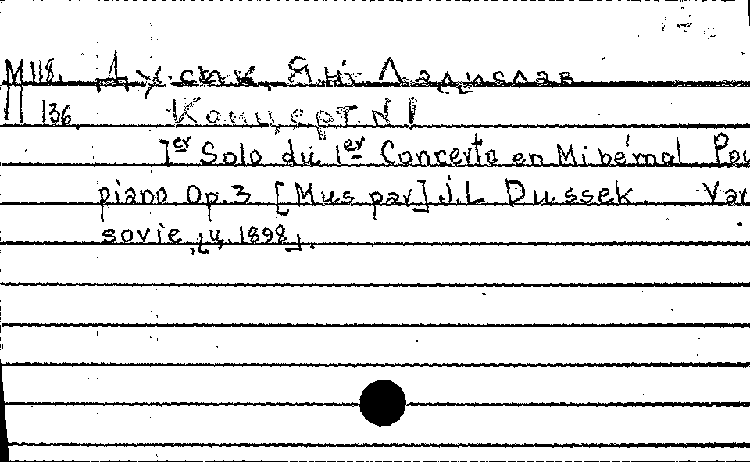 М 118. Дусик, Ян Ладислав
136. Концерт N 1
1er Solo du 1er Concerto en Mi bémol Pou
piano Op. 3 [Mus par] J. L Dussek. Var
sovie, [ц. 1898].